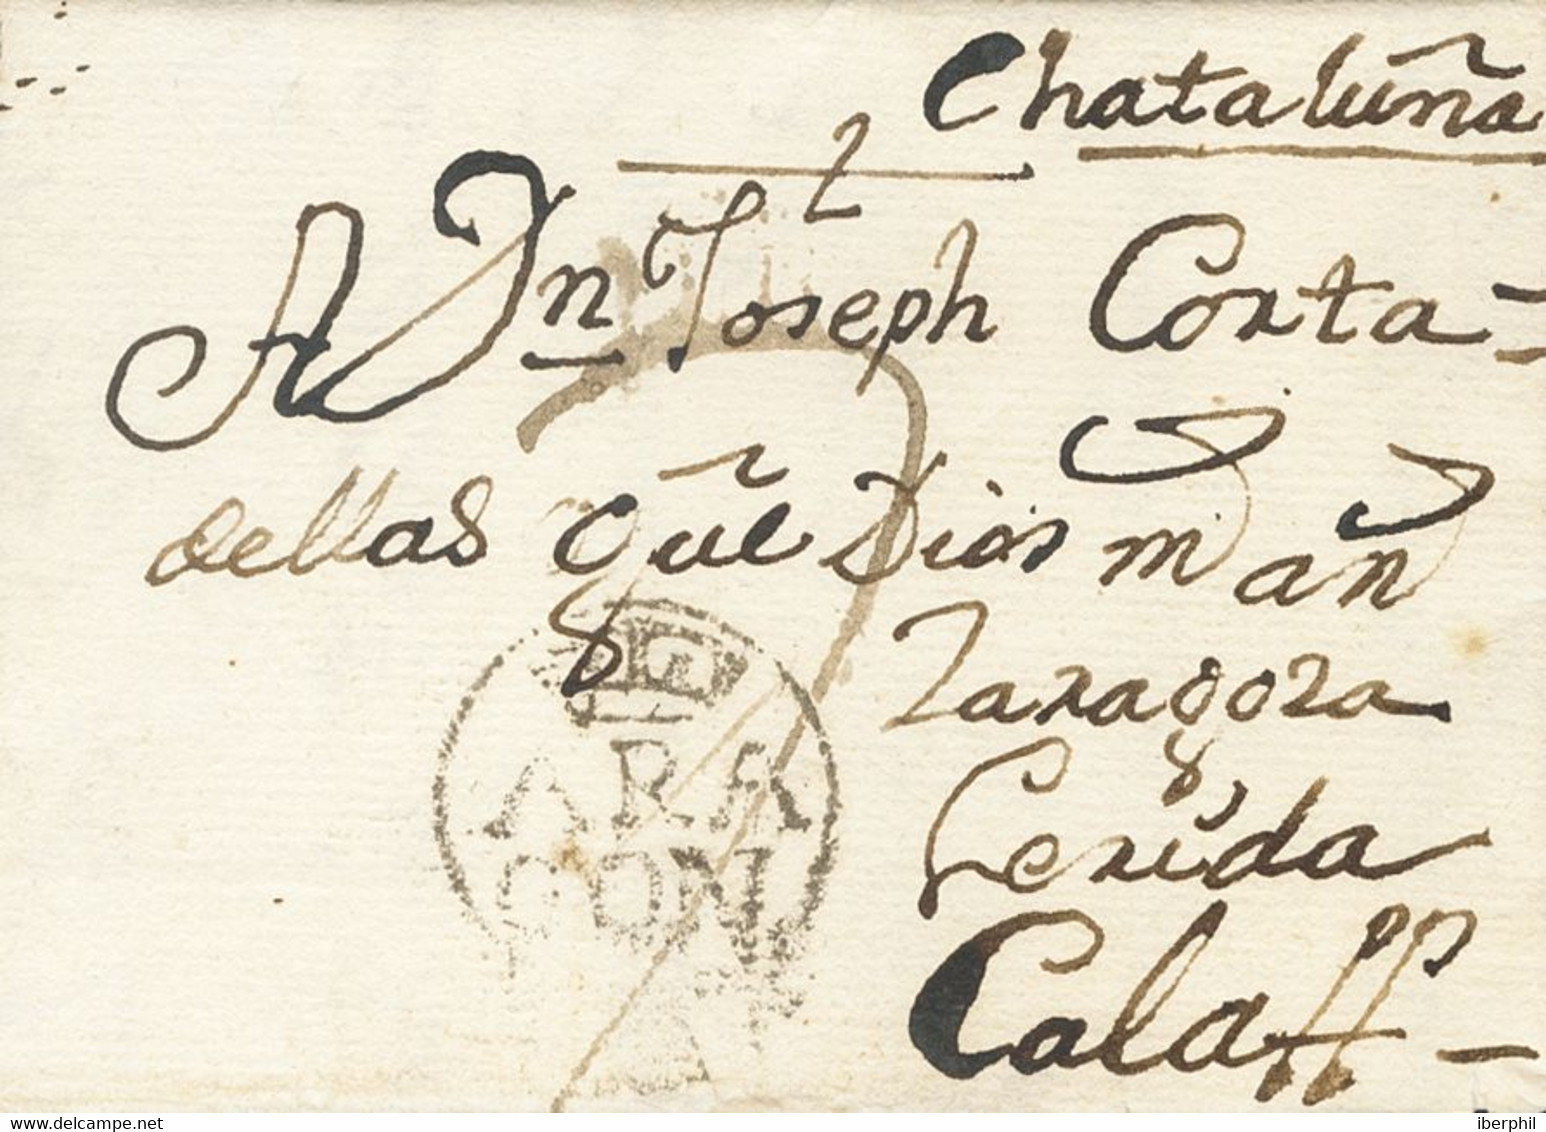 Chataluña
A Dn Joseph Corta-
dellas que Dios m an
Zaragoza
Lerida
Calaff -
ARA
GON
www.delcampe.net
iberphil